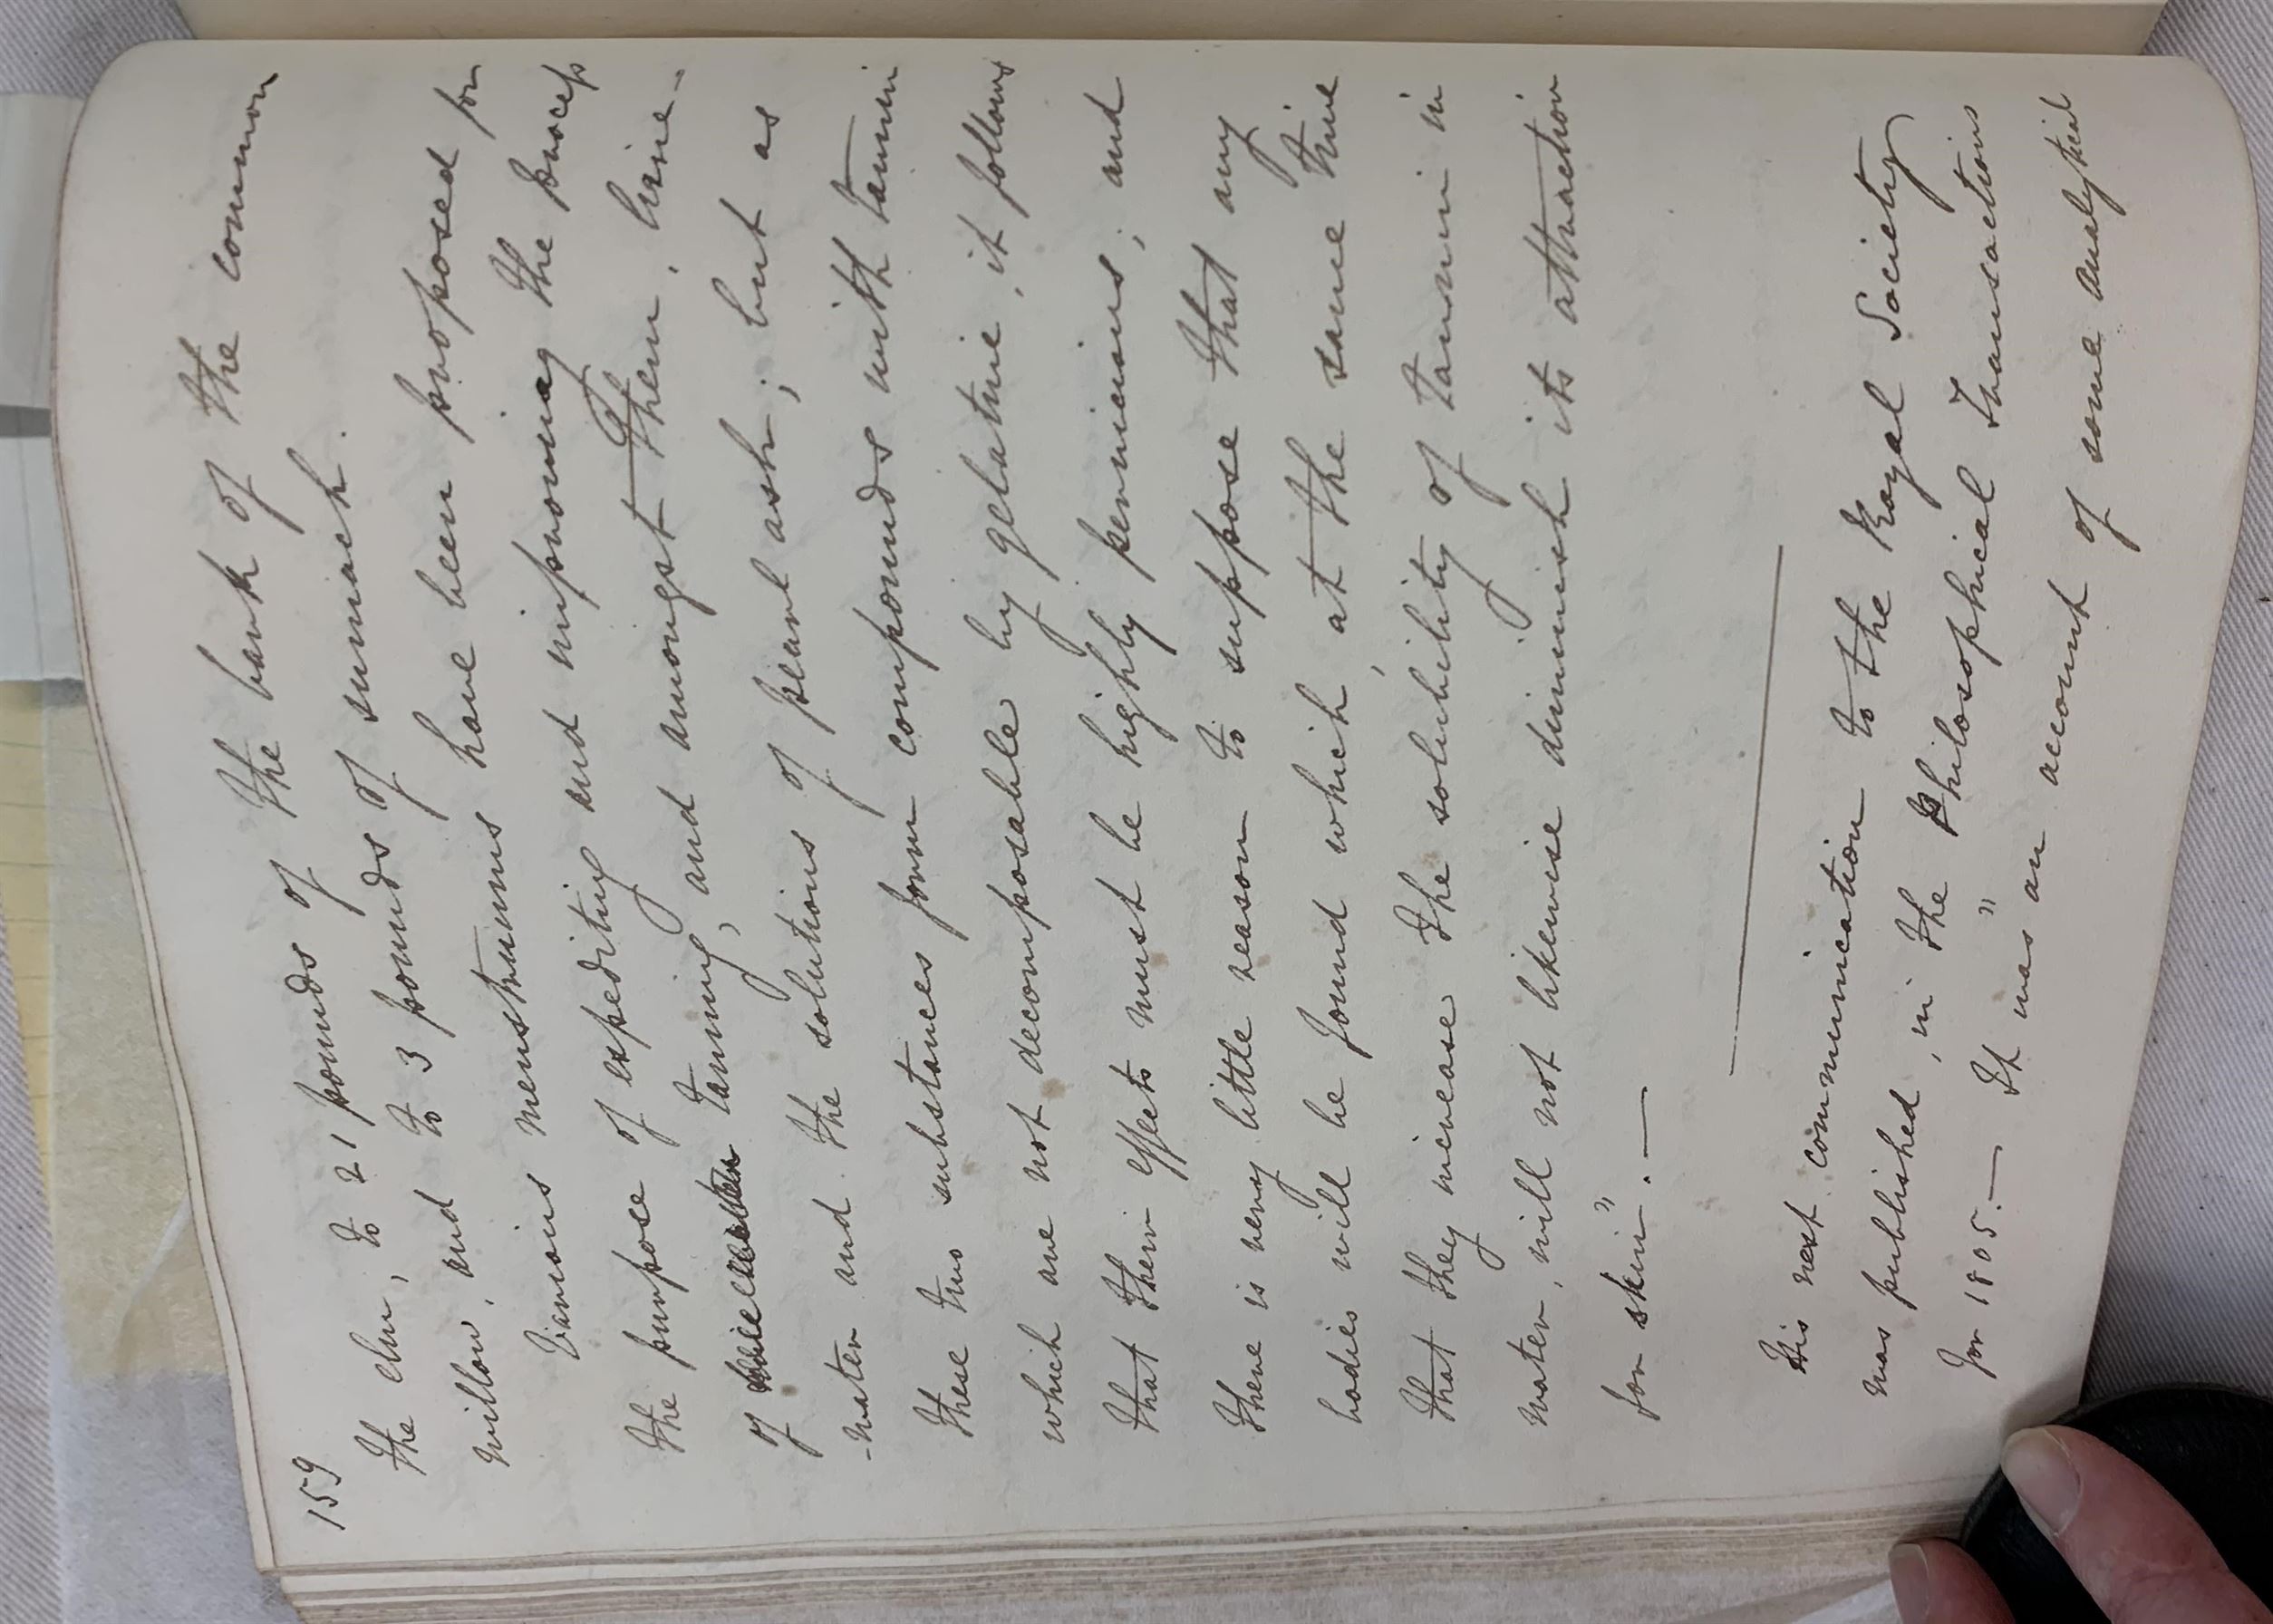 159
the elm, to 21 pounds of the bark of the common
willow, and to 3 pounds of sumach.
Various menstruums have been proposed for
the purpose of expediting and improving the process
of tanning, and amongst them, lime-
-water and the solutions of pearl ash; but as
these two substances form compounds with tannin
which are not decomposable by gelatine, it follows
that their effects must be highly pernicious; and
there is very little reason to suppose that any
bodies will be found which, at the same time
that they increase the solubility of tannin in
water, will not likewise diminish its attraction
for skin". —
His next communication to the Royal Society
was published, in the Philosophical Transactions
for 1805. — It was "an account of some analytical